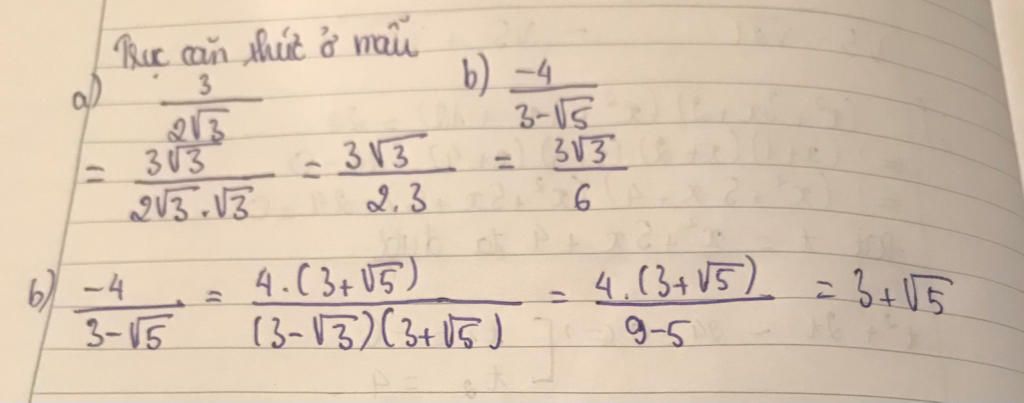 Trục căn thức ở mẫu
a) 3/(2√3) b) -4/(3-√5)
= 3√3/(2√3.√3) = 3√3/(2.3) = 3√3/6
b) -4/(3-√5) = 4.(3+√5)/((3-√3)(3+√5)) = 4.(3+√5)/(9-5) = 3+√5